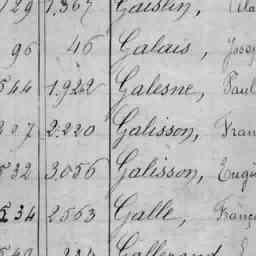 129 1.367 Gaislin,
96 46 Galais, Jose
544 1.922 Galesne, Paul
7 2.220 Galisson, Fran
532 3.056 Galisson, Eugè
534 2563 Galle, Franç
Gallerand